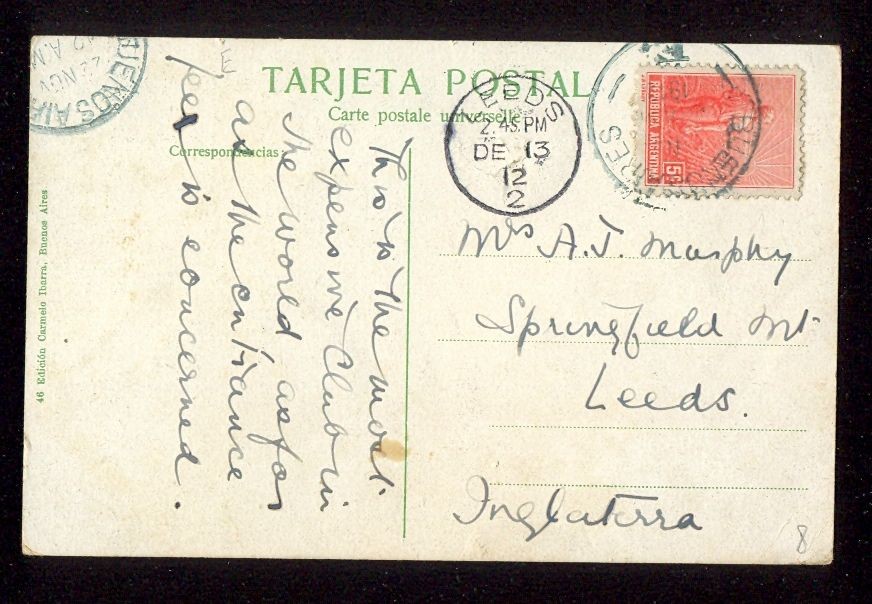 TARJETA POSTAL
Carte postale universelle
Correspondencias
46 Edición Carmelo Ibarra, Buenos Aires
This is the most
expensive Club in
the world as far
as the entrance
fee is concerned.
BUENOS AIRES
NOV
LEEDS
2.45 PM
DE 13
12
2
BUENOS AIRES
REPUBLICA ARGENTINA
5
Mrs A.J. Murphy
Springfield Mt.
Leeds.
Inglaterra
8